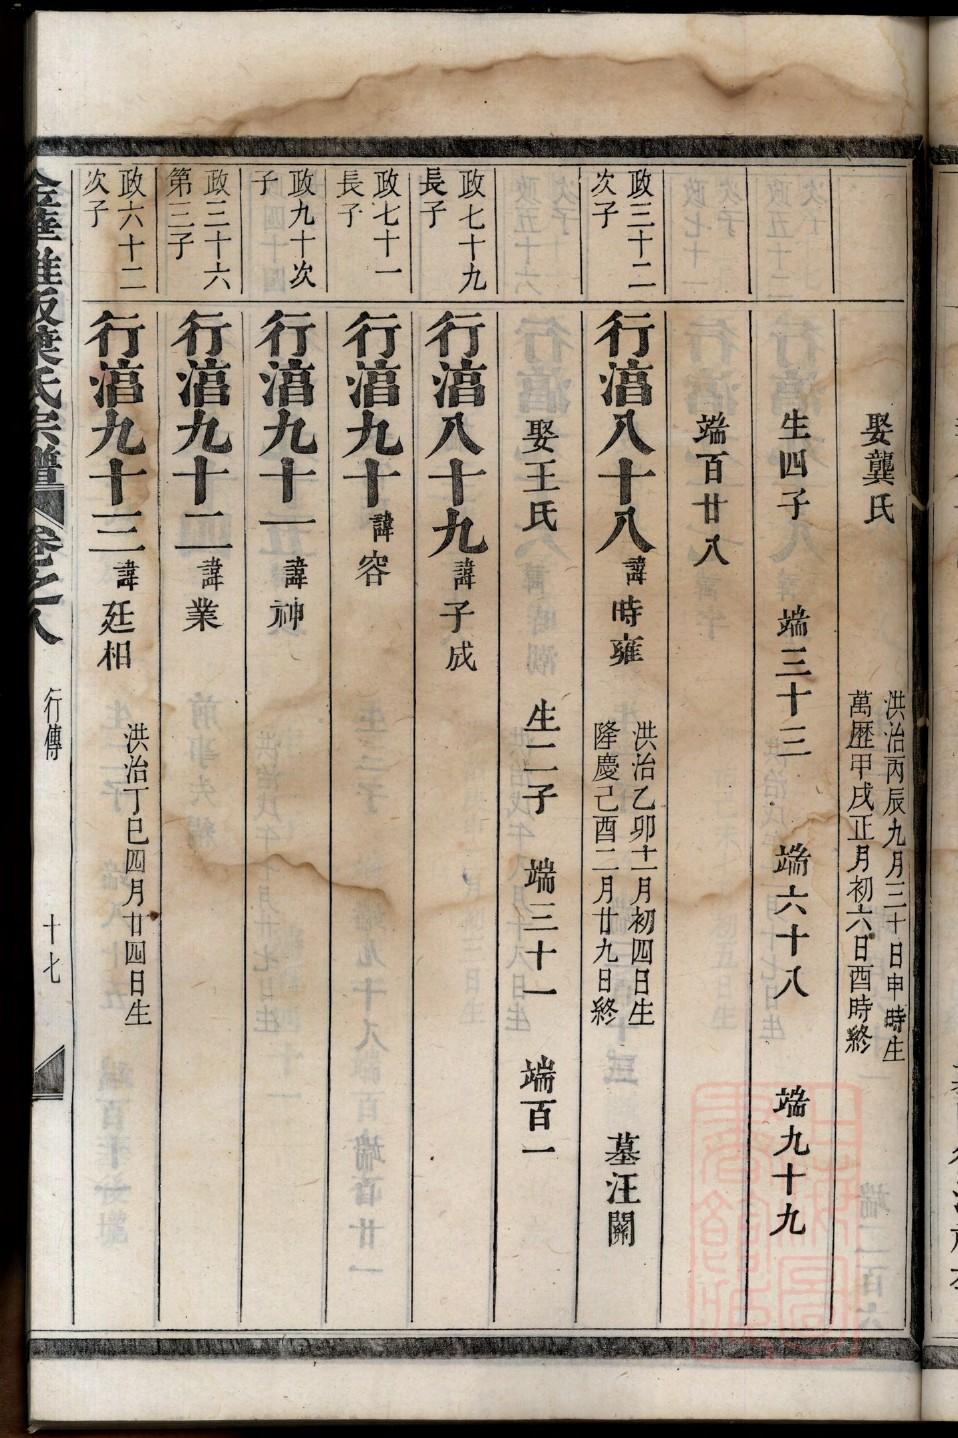 娶龔氏
洪治丙辰九月三十日申時生
萬歷甲戌正月初六日酉時終
生四子 端三十三 端六十八 端九十九
端百廿八
政三十二
次子
行湻八十八 諱時雍
洪治乙卯十一月初四日生
隆慶己酉二月廿九日終
墓汪關
娶王氏 生二子 端三十一 端百一
政七十九
長子
行湻八十九 諱子成
政七十一
長子
行湻九十 諱容
政九十次
子
行湻九十一 諱神
政三十六
第三子
行湻九十二 諱業
政六十二
次子
行湻九十三 諱廷相
洪治丁巳四月廿四日生
葉氏宗譜 卷之八 行傳 十七